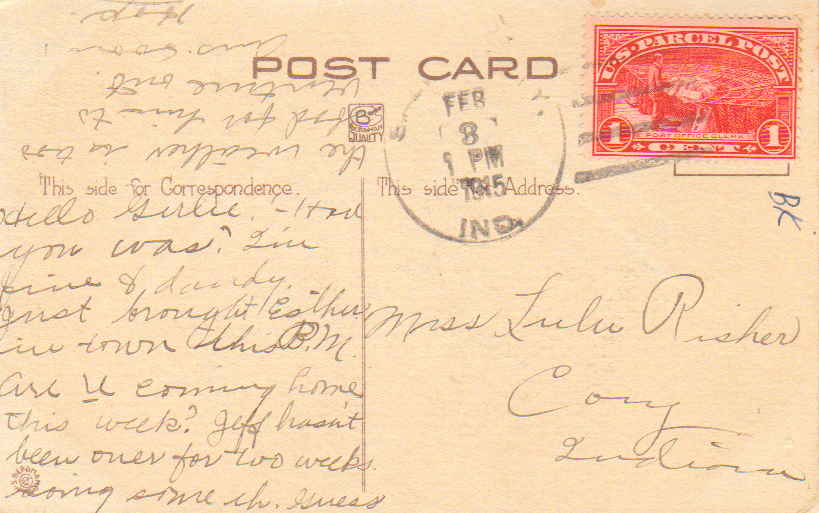 POST CARD
U.S. PARCEL POST
POST OFFICE CLERK
1 1
FEB
8
1 PM
1915
IND.
QUALITY
This side for Correspondence.
This side for Address.
BK
Hello Girlie! - How
you was? I'm
fine & dandy.
Just brought Esther
in town this P.M.
Are U coming home
this week? Jeff hasn't
been over for two weeks.
Going some eh. Guess
the weather is too
bad for him to
venture out
Ans. soon
Miss Lulu Risher
Cory
Indiana